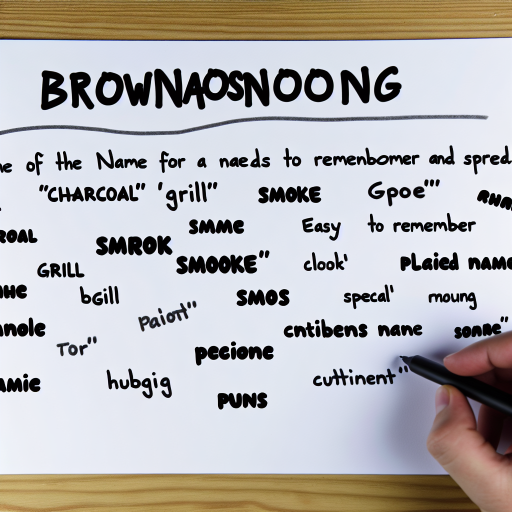 BROWNAOSNOONG
of the Name for a naeds to remenbomer and spred
"CHARCOAL" 'grill" SMOKE Gpoe'"
SMME Easy to remember
SMROK
GRILL SMOOKE" clook' PLaied name
bGill SMOS specal' moung
Paiort" cntibens nane
Tor" pecione
hubgig cuttinent"
PUNS